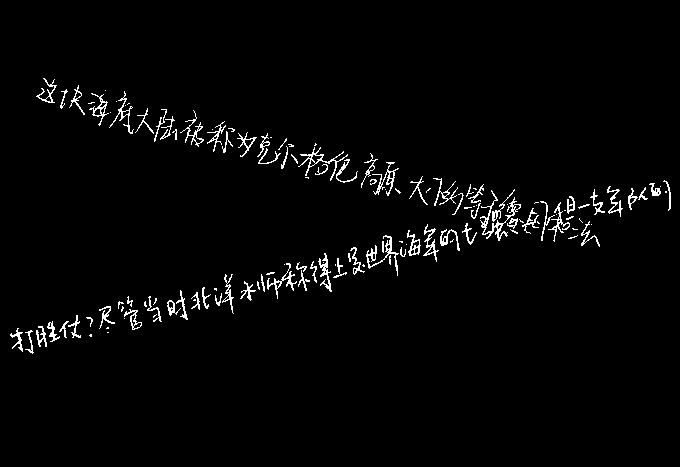 这块海底大陆被称为克尔格伦高原、大的等
打胜仗?尽管当时北洋水师称得上是世界海军的七 一支军队的